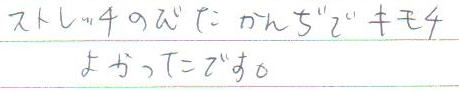 ストレッチのびたかんぢでキモチ
よかったです。